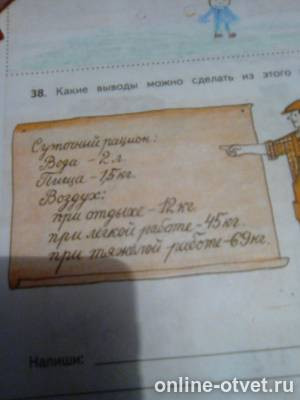 38. Какие выводы можно сделать из этого
Суточный рацион:
Вода - 2 л.
Пища - 1,5 кг.
Воздух:
при отдыхе - 12 кг.
при лёгкой работе - 45 кг.
при тяжёлой работе - 69 кг.
Напиши:
online-otvet.ru